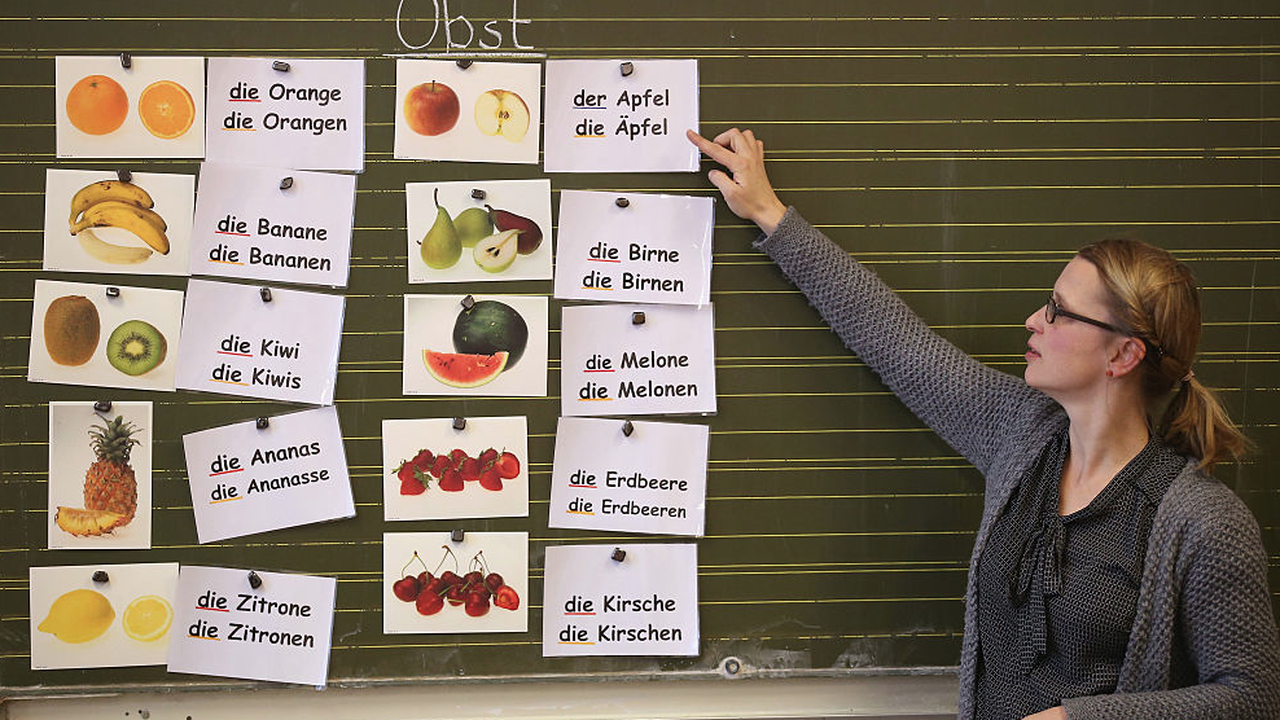 Obst
die Orange
die Orangen
der Apfel
die Äpfel
die Banane
die Bananen
die Birne
die Birnen
die Kiwi
die Kiwis
die Melone
die Melonen
die Ananas
die Ananasse
die Erdbeere
die Erdbeeren
die Zitrone
die Zitronen
die Kirsche
die Kirschen